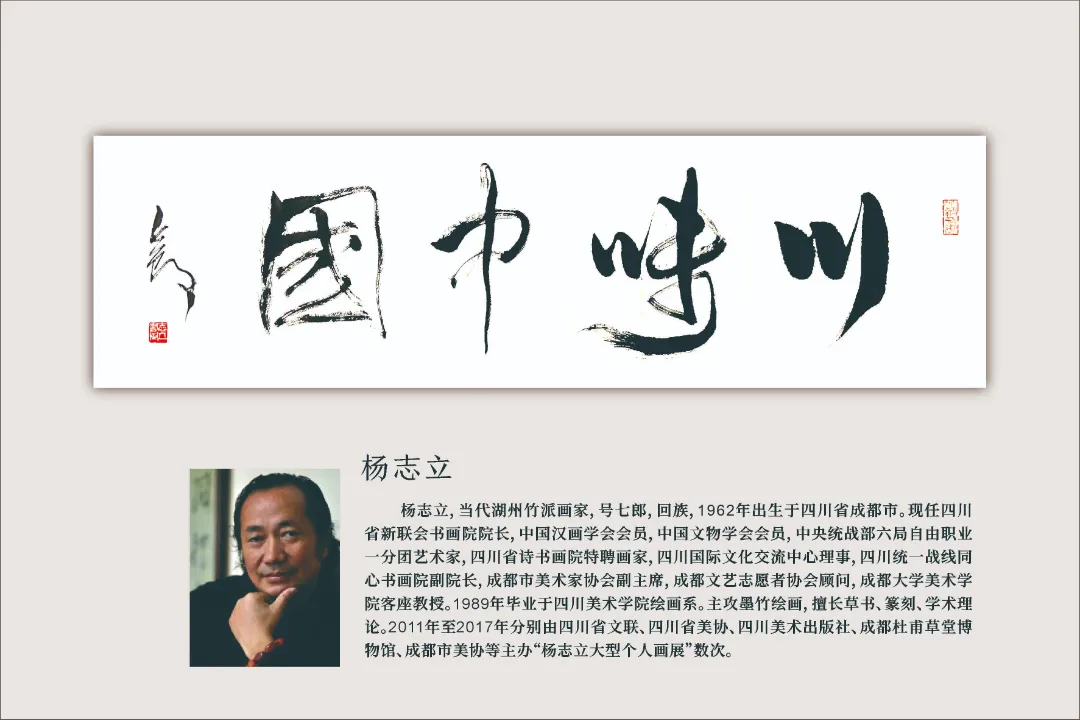 川味中國
杨志立
杨志立，当代湖州竹派画家，号七郎，回族，1962年出生于四川省成都市。现任四川
省新联会书画院院长，中国汉画学会会员，中国文物学会会员，中央统战部六局自由职业
一分团艺术家，四川省诗书画院特聘画家，四川国际文化交流中心理事，四川统一战线同
心书画院副院长，成都市美术家协会副主席，成都文艺志愿者协会顾问，成都大学美术学
院客座教授。1989年毕业于四川美术学院绘画系。主攻墨竹绘画，擅长草书、篆刻、学术理
论。2011年至2017年分别由四川省文联、四川省美协、四川美术出版社、成都杜甫草堂博
物馆、成都市美协等主办“杨志立大型个人画展”数次。